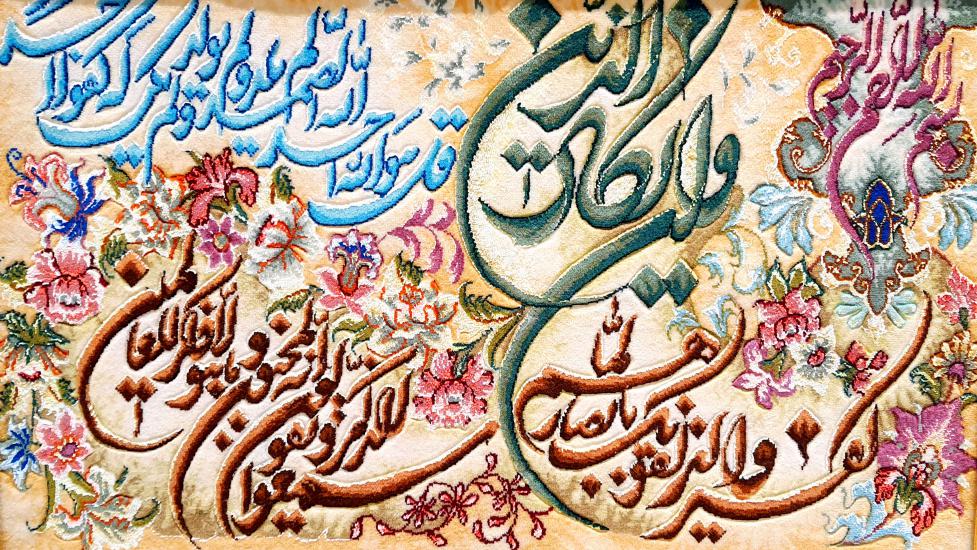 بسم الله الرحمن الرحيم
وان يكاد الذين
كفروا ليزلقونك بابصارهم لما
سمعوا الذكر ويقولون انه لمجنون وما هو الا ذكر للعالمين
قل هو الله احد الله الصمد لم يلد ولم يولد ولم يكن له كفوا احد